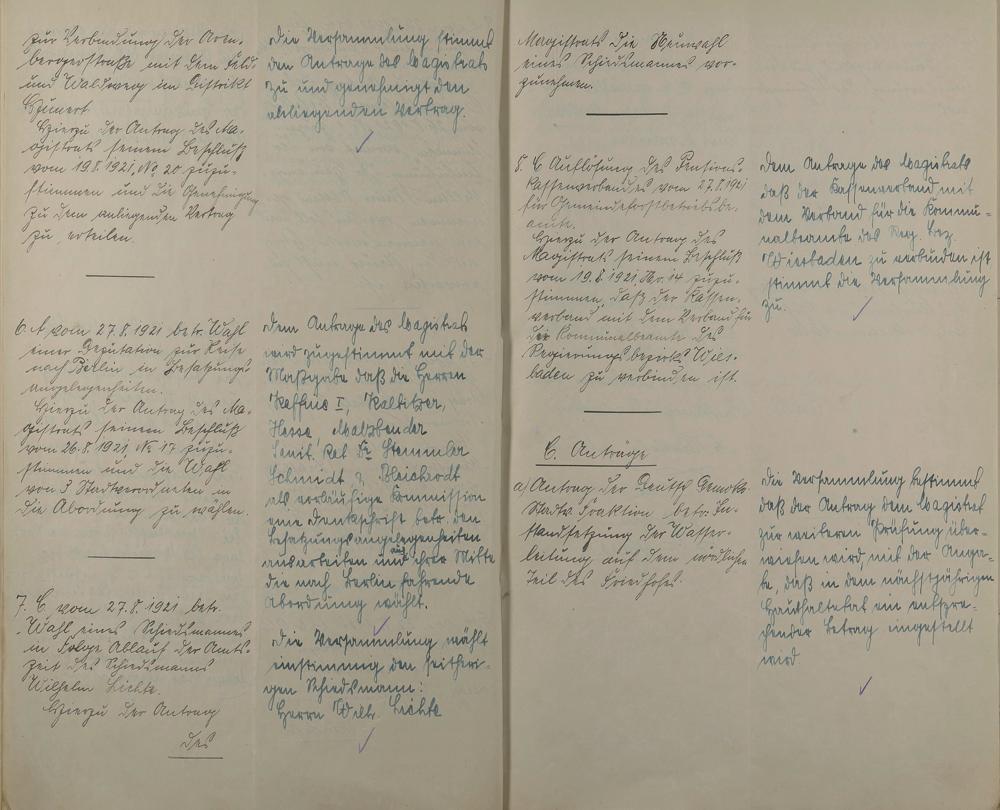 zur Verbindung der Aren-
bergerstraße mit dem Feld-
und Waldweg im Distrikt
Hierzu der Antrag des Ma-
gistrats seinem Beschluß
vom 19.8.1921, No 20 zuzu-
stimmen und die Genehmigung
zu dem anliegenden Vertrag
zu erteilen.
Die Versammlung stimmt
dem Antrage des Magistrats
zu und genehmigt den
anliegenden Vertrag.
6. A vom 27.8.1921 betr. Wahl
einer Deputation zur Reise
nach Berlin in Besatzungs-
angelegenheiten.
Hierzu der Antrag des Ma-
gistrats seinem Beschluß
vom 26.8.1921, No 17 zuzu-
stimmen und die Wahl
von 3 Stadtverordneten in
die Abordnung zu wählen.
Dem Antrage des Magistrats
wird zugestimmt mit der
Maßgabe daß die Herren
I, Kalbitzer,
Hesse, Malzbender
Sanit. Rat Dr Stemmler
Schmidt &
als vorläufige Kommission
eine Denkschrift betr. den
Besatzungsangelegenheiten
ausarbeiten und aus ihrer Mitte
die nach Berlin fahrende
Abordnung wählt.
7. C vom 27.8.1921 betr.
Wahl eines Schiedsmannes
in Folge Ablauf der Amts-
zeit des Schiedsmanns
Wilhelm Lichte.
Hierzu der Antrag
des
Die Versammlung wählt
einstimmig den seitheri-
gen Schiedsmann:
Herrn Wilh. Lichte
Magistrats die Neuwahl
eines Schiedsmannes vor-
zunehmen.
8. C Auflösung des Pensions-
kassenverbandes vom 27.8.1921
für Gemeindeforstbetriebsbe-
amte.
Hierzu der Antrag des
Magistrats seinem Beschluß
vom 19.8.1921, Nr. 14 zuzu-
stimmen, daß der Kassen-
verband mit dem Verband für
die Kommunalbeamte des
Regierungsbezirks Wies-
baden zu verbinden ist.
Dem Antrage des Magistrats
daß der Kassenverband mit
dem Verband für die Kommu-
nalbeamte des Reg. Bez.
Wiesbaden zu verbinden ist
stimmt die Versammlung
zu.
C. Anträge
a) Antrag der Deutsch Demokr.
Stadtv. Fraktion betr. In-
standsetzung der Wasser-
leitung auf dem nördlichen
Teil des Friedhofes.
Die Versammlung bestimmt
daß der Antrag dem Magistrat
zur weiteren Prüfung über-
wiesen wird, mit der Anga-
be, daß in dem nächstjährigen
Haushaltetat ein entspre-
chender Betrag eingestellt
wird